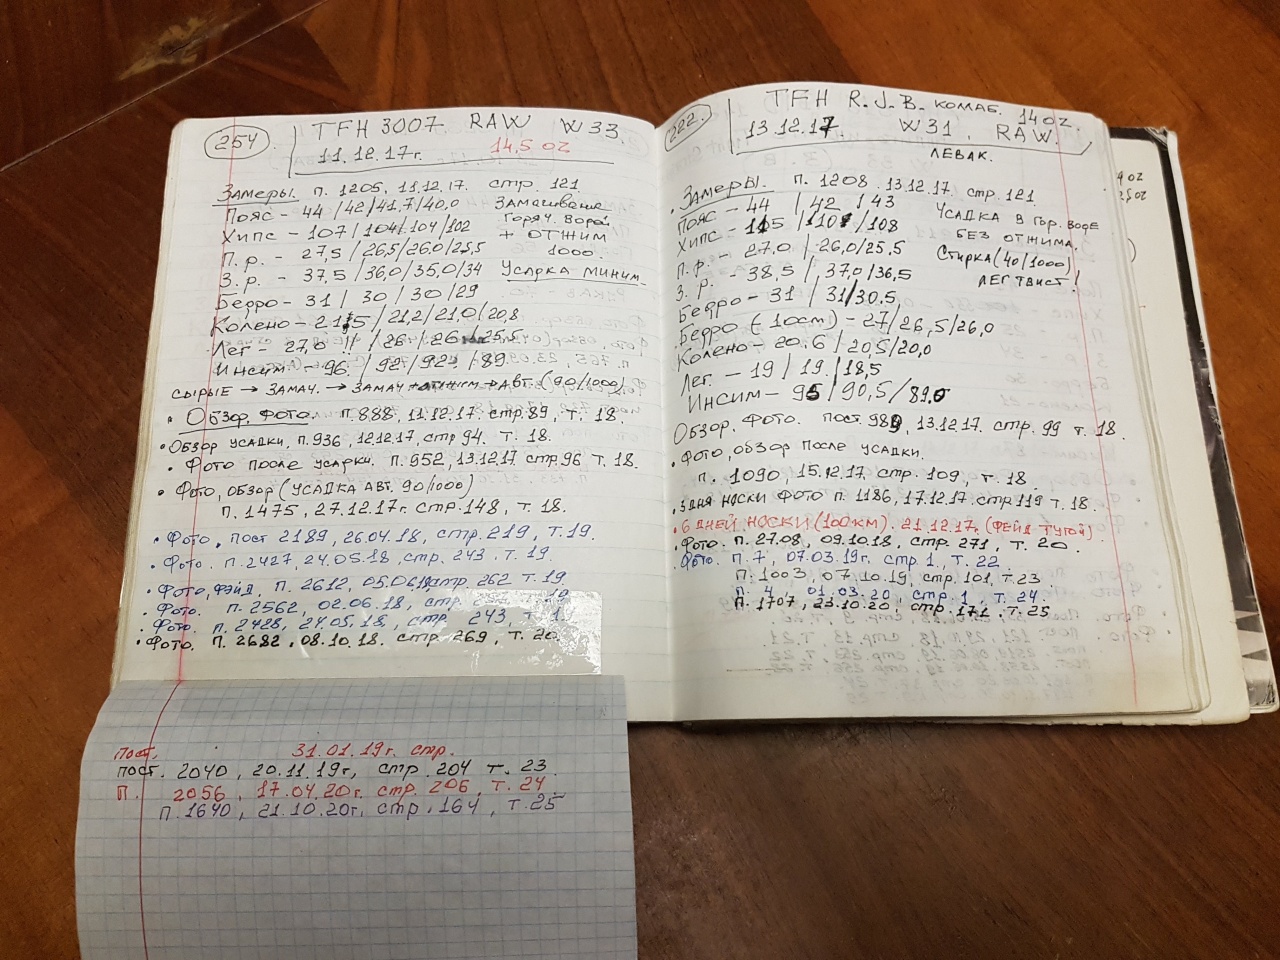 254.
TFH 3007 RAW W33.
11.12.17г. 14,5 OZ
Замеры. п. 1205, 11.12.17. стр. 121
Пояс - 44 /42/41,7/40,0 Замачивание
Хипс - 107/104/104/102 горяч. вода
П.р. - 27,5/26,5/26.0/25,5 + отжим
1000.
З.р. - 37,5/36,0/35,0/34 Усадка миним.
Бедро - 31 / 30 / 30 / 29
Колено - 21,5/21,2/21,0/20,8
Лег - 27,0 /26/ 26 / 25,5
Инсим - 96 / 92/92 / 89
сырые → замач. → замач + отжим → авт. (90/1000)
• Обзор, фото. п.888, 11.12.17. стр 89, т. 18.
• Обзор усадки. п.936, 12.12.17, стр 94. т. 18.
• Фото после усадки. п.952, 13.12.17. стр.96 т. 18.
• Фото, обзор (усадка авт. 90/1000)
п. 1475, 27.12.17г. стр.148, т. 18.
• Фото, пост 2189, 26.04.18, стр. 219, т. 19.
• Фото. п.2427, 24.05.18, стр. 243, т. 19.
• Фото, фэйд, п. 2612, 05.06.18, стр. 262 т. 19
• Фото. п. 2562, 02.06.18, стр. т. 19
• Фото. п. 2428, 24.05.18, стр. 243, т. 19
• Фото. п. 2682, 08.10.18. стр. 269, т. 20
Пост. 31.01.19г. стр.
пост. 2040, 20.11.19г, стр. 204 т. 23.
П. 2056, 17.04.20г. стр. 206, т. 24
П.1640, 21.10.20г. стр. 164, т.25
222.
TFH R.J.B. комаб. 14 oz.
13.12.17. W31, RAW.
левак.
• Замеры. п. 1208. 13.12.17. стр. 121
Пояс - 44 / 42 / 43 Усадка в гор. воде
Хипс - 115 / 110 / 108 без отжима.
П.р. - 27,0 / 26,0/25.5 Стирка (40/1000)
З. р. - 38,5 / 37,0/36,5 лег твист!
Бедро - 31 / 31/30.5
Бедро (10см) - 27/26,5/26,0
Колено - 20.6 / 20,5/20,0
Лег. - 19 / 19 / 18,5
Инсим - 95 / 90,5 / 89,0
Обзор. Фото. Пост. 989, 13.12.17. стр. 99 т. 18.
• Фото, обзор после усадки.
п. 1090, 15.12.17, стр. 109, т. 18.
• 3 дня носки фото п. 1186, 17.12.17 стр 119 т. 18.
• 6 дней носки (100 км). 21.12.17г. (фейд тугой)
• Фото. п. 27.08, 09.10.18, стр. 271, т. 20.
• Фото. п. 7, 07.03.19г. стр 1, т. 22
п. 1003, 07.10.19, стр. 101, т. 23
п. 4, 01.03.20, стр. 1, т. 24.
п. 1707, 23.10.20, стр. 171, т. 25